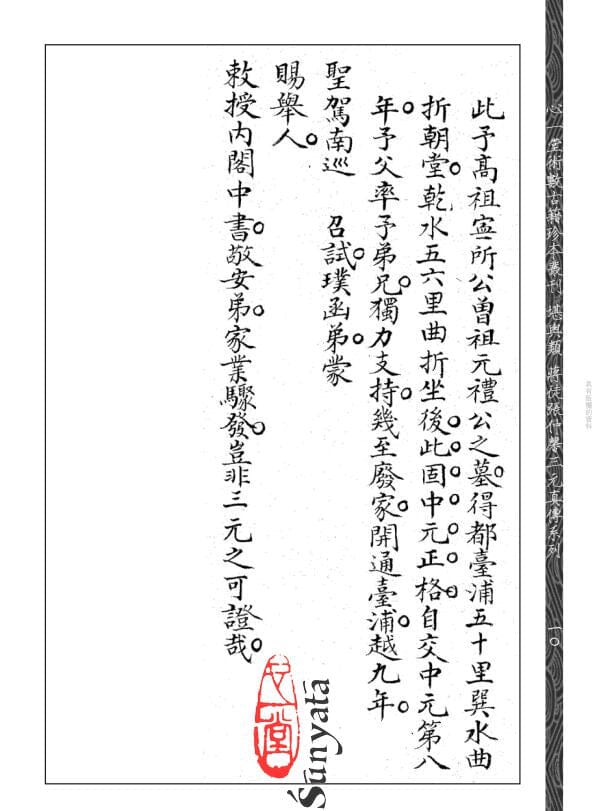 此予高祖寍所公曽祖元禮公之墓。得都臺浦五十里巽水曲
折朝堂。乾水五六里曲折坐後。此。固。中。元。正。格。自交中元第八
年。予父率予弟兄。獨力支持。幾至廢家。開通臺浦。越九年。
聖駕南巡　召試。璞函弟。蒙
賜舉人。
敕授内閣中書。敬安弟。家業驟發。豈非三元之可證哉。
心一堂術數古籍珍本叢刊 堪輿類 蔣徒張仲馨三元真傳系列
一〇
心一堂
Śūnyatā